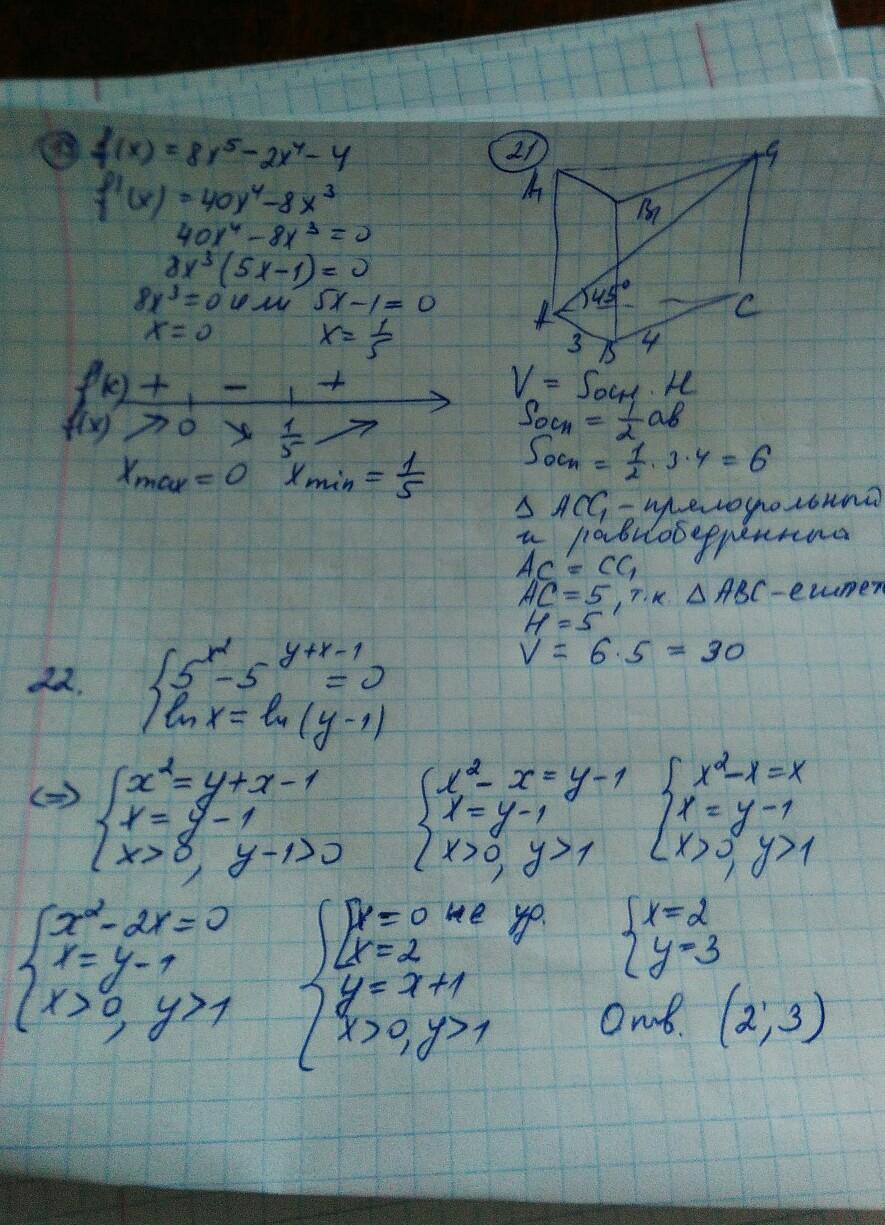 f(x) = 8x⁵ - 2x⁴ - 4
f'(x) = 40x⁴ - 8x³
40x⁴ - 8x³ = 0
8x³(5x-1) = 0
8x³=0 или 5x-1=0
x=0 x=1/5
f'(x) + - +
f(x) ↗ 0 ↘ 1/5 ↗
x max = 0 x min = 1/5
21
A₁ B₁ C₁
A 45° C
3 B 4
V = Sосн · H
Sосн = 1/2 ab
Sосн = 1/2 · 3·4 = 6
△ ACC₁ - прямоугольный
и равнобедренный
AC = CC₁
AC = 5, т.к. △ABC-египет
H = 5
V = 6·5 = 30
22. { 5^(x²) - 5^(y+x-1) = 0
ln x = ln (y-1)
<=> { x² = y+x-1
x = y-1
x>0, y-1>0
{ x² - x = y-1
x = y-1
x>0, y>1
{ x²-x = x
x = y-1
x>0, y>1
{ x² - 2x = 0
x = y-1
x>0, y>1
{ [ x = 0 не ур.
x = 2
y = x+1
x>0, y>1
{ x=2
y=3
Отв. (2; 3)